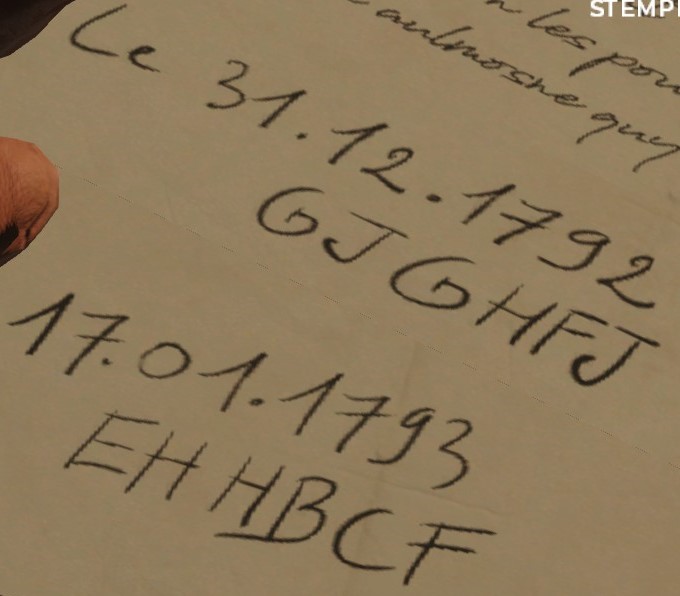 STEMP
les pou
aulmosne quy
Le 31.12.1792
GJGHFJ
17.01.1793
EHHBCF